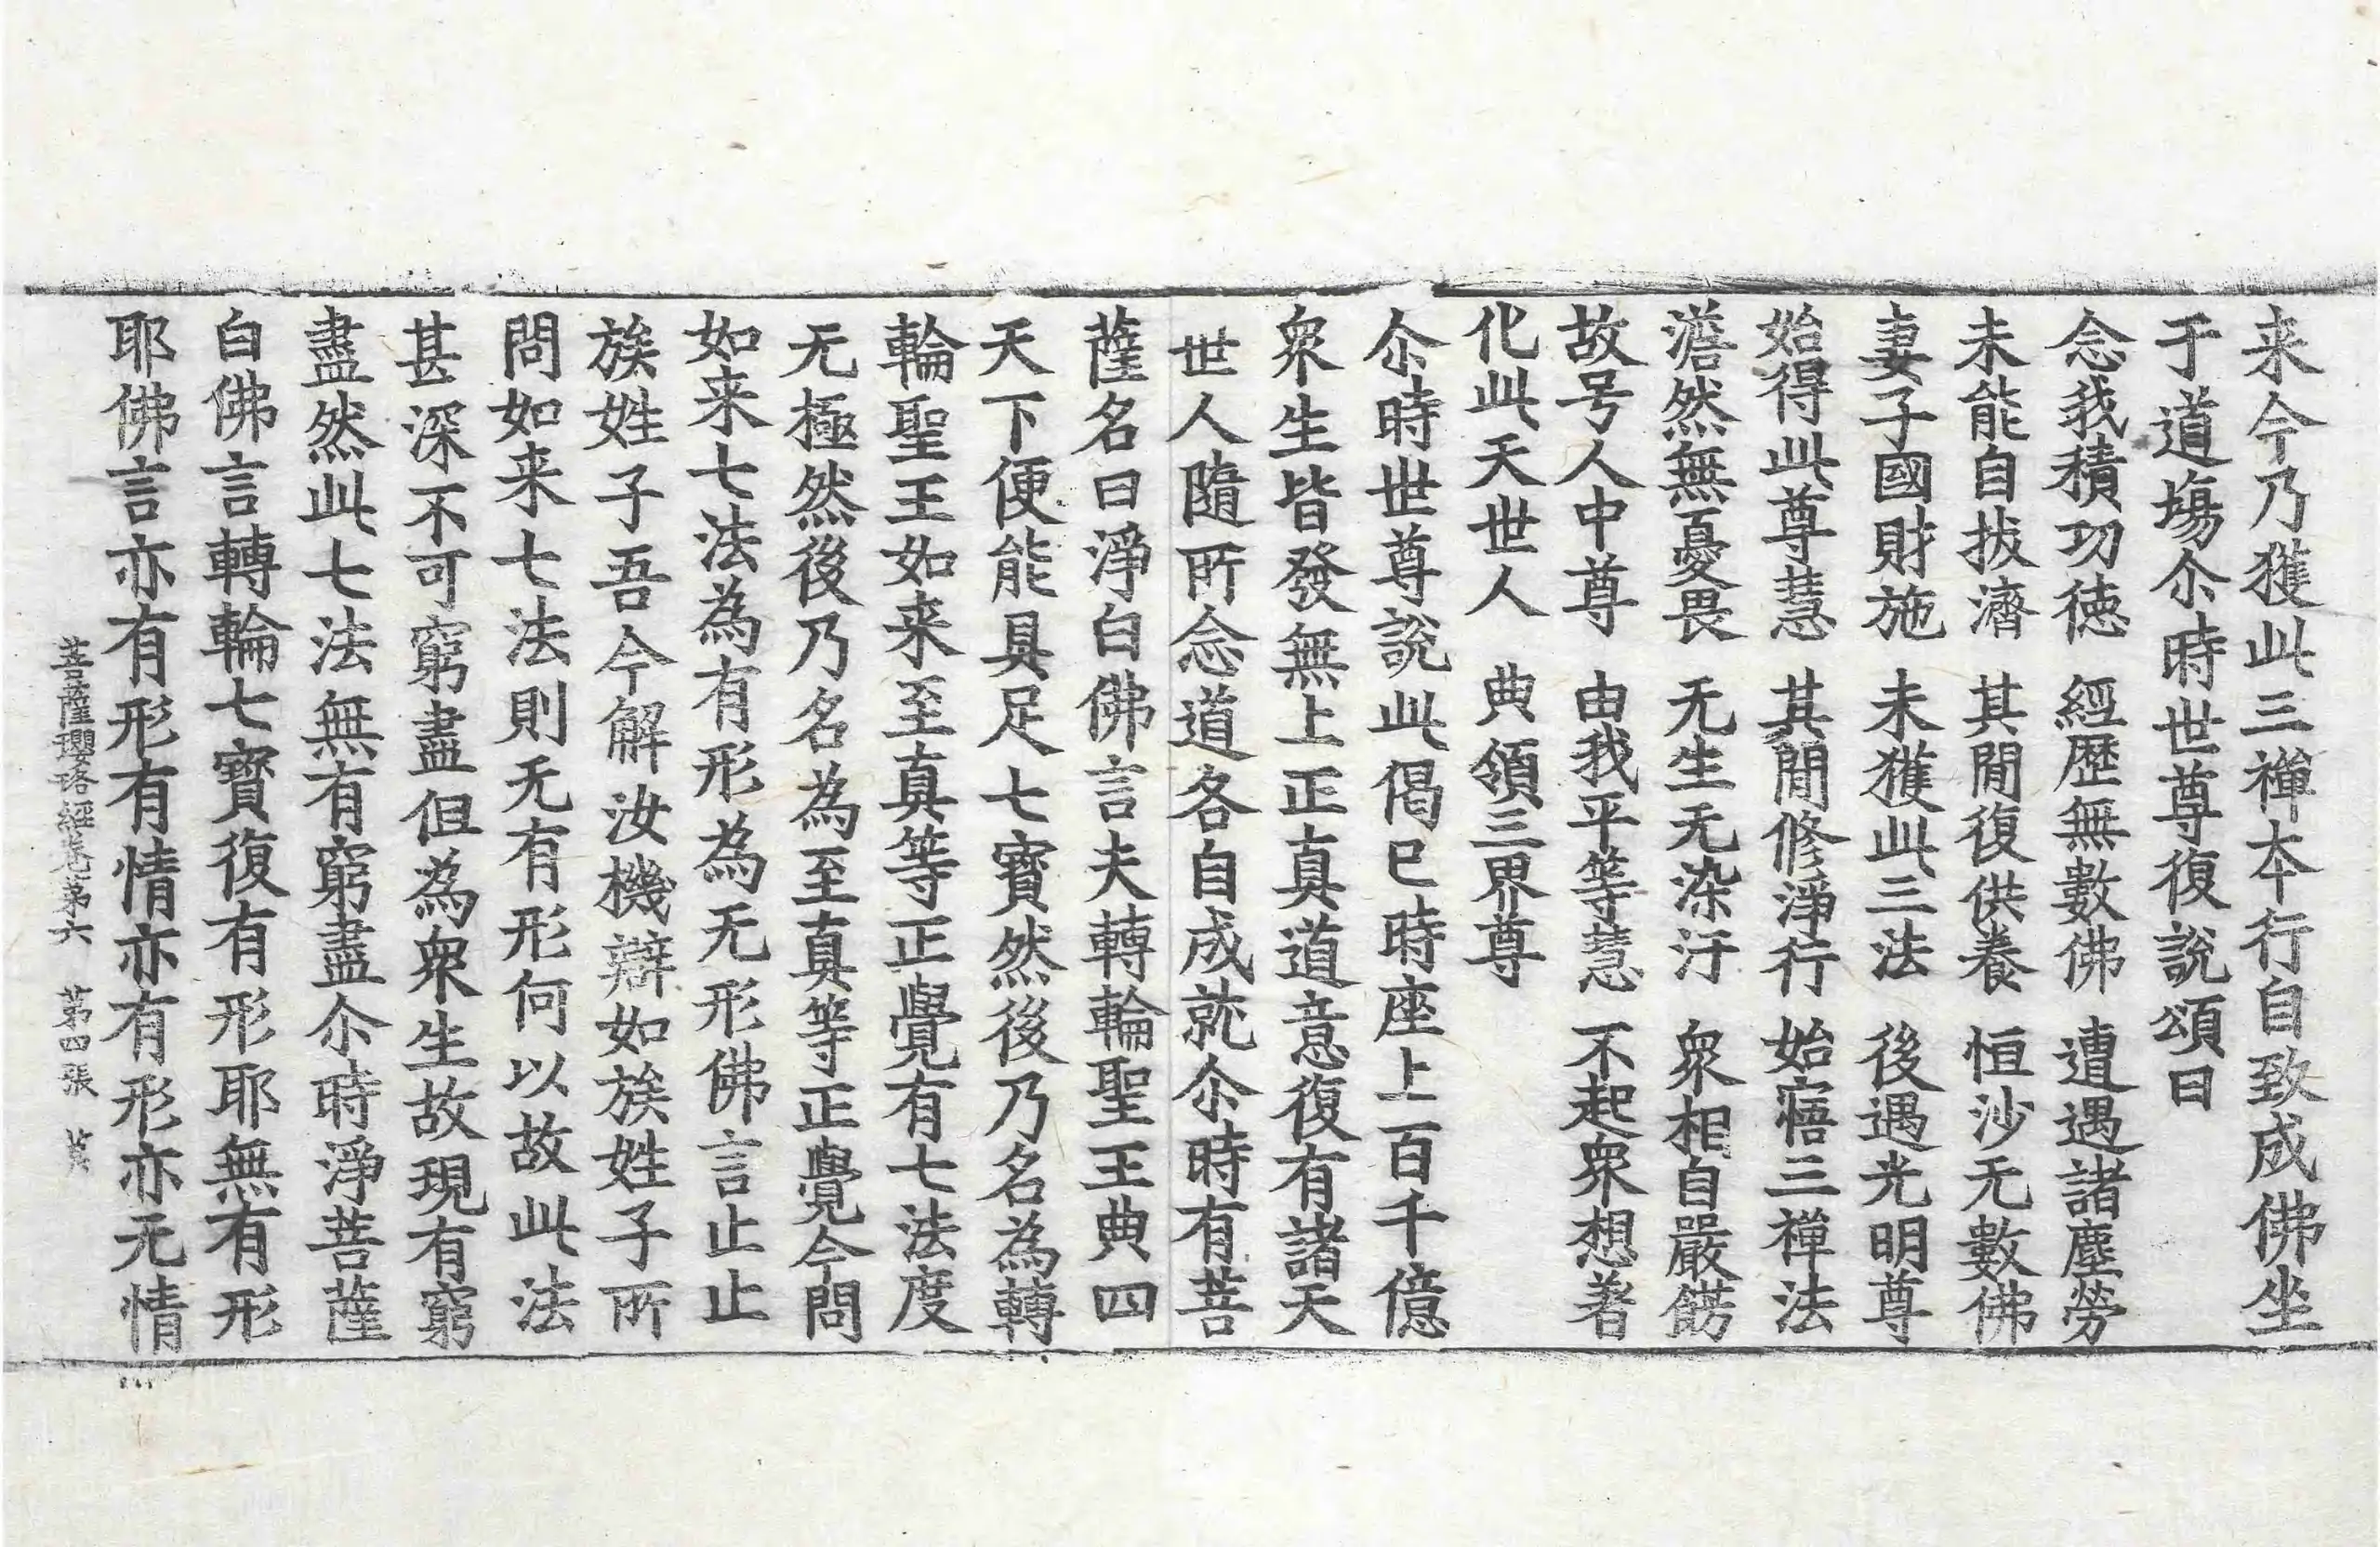 来今乃獲此三禪本行自致成佛坐
于道場尒時世尊復說頌曰
念我積功徳　經歷無數佛　遭遇諸塵勞
未能自拔濟　其閒復供養　恒沙无數佛
妻子國財施　未獲此三法　後遇光明尊
始得此尊慧　其閒修淨行　始寤三禪法
澹然無憂畏　无生无染汙　衆相自嚴餝
故号人中尊　由我平等慧　不起衆想著
化此天世人　典領三界尊
尒時世尊說此偈已時座上百千億
衆生皆發無上正真道意復有諸天
世人隨所念道各自成就尒時有菩
薩名曰淨白佛言夫轉輪聖王典四
天下便能具足七寶然後乃名為轉
輪聖王如来至真等正覺有七法度
无極然後乃名為至真等正覺今問
如来七法為有形為无形佛言止止
族姓子吾今解汝機辯如族姓子所
問如来七法則无有形何以故此法
甚深不可窮盡但為衆生故現有窮
盡然此七法無有窮盡尒時淨菩薩
白佛言轉輪七寶復有形耶無有形
耶佛言亦有形有情亦有形亦无情
菩薩瓔珞經卷第六　第四張